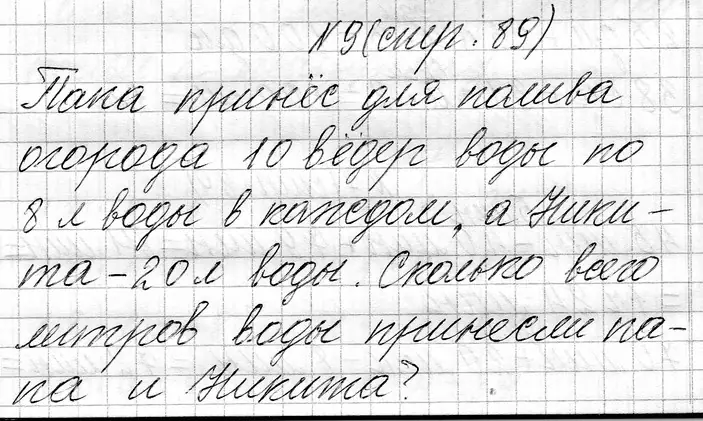 №9 (стр. 89)
Папа принёс для полива
огорода 10 вёдер воды по
8 л воды в каждом, а Ники-
та – 20 л воды. Сколько всего
литров воды принесли па-
па и Никита?